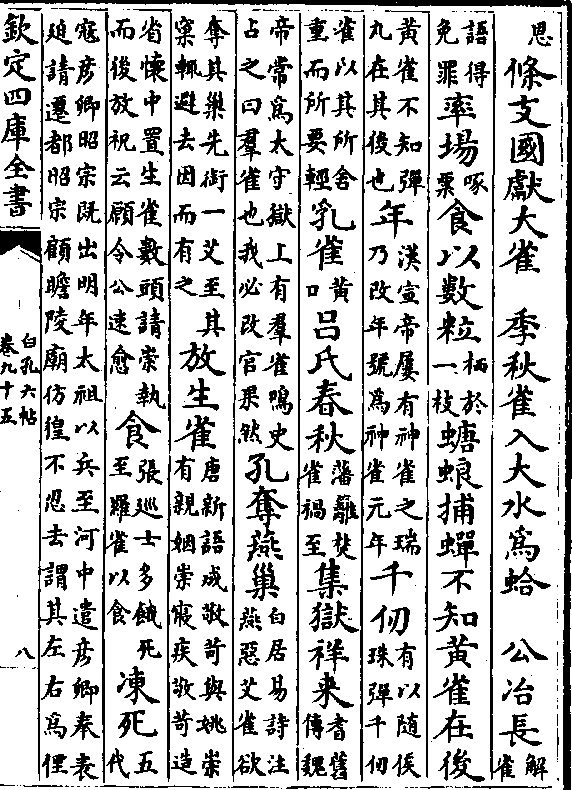 思條支國獻大雀　季秋雀入大水為蛤　公冶長解雀
語得免罪率場啄粟食以數粒栖於一枝螗蜋捕蟬不知黃雀在後
黃雀不知彈丸在其後也年漢宣帝屢有神雀之瑞乃改年號為神雀元年千仞有以隨侯珠彈千仞
雀以其所舍重而所要輕乳雀黃口呂氏春秋藩籬焚雀禍至集獄祥来耆舊傳魏
帝常為太守獄上有羣雀鳴史占之曰羣雀也我必改官果然孔奪燕巢白居易詩注燕惡艾雀欲
奪其巢先銜一艾至其窠輒避去因而有之放生雀唐新語成敬苛與姚崇有親姻崇寢疾敬苛造
省懷中置生雀數頭請崇執而後放祝云願令公速愈食張巡士多餓死至羅雀以食凍死五代
寇彦卿昭宗既出明年太祖以兵至河中遣彦卿奉表迫請遷都昭宗顧瞻陵廟仿徨不忍去謂其左右為俚
欽定四庫全書
白孔六帖
卷九十五
八